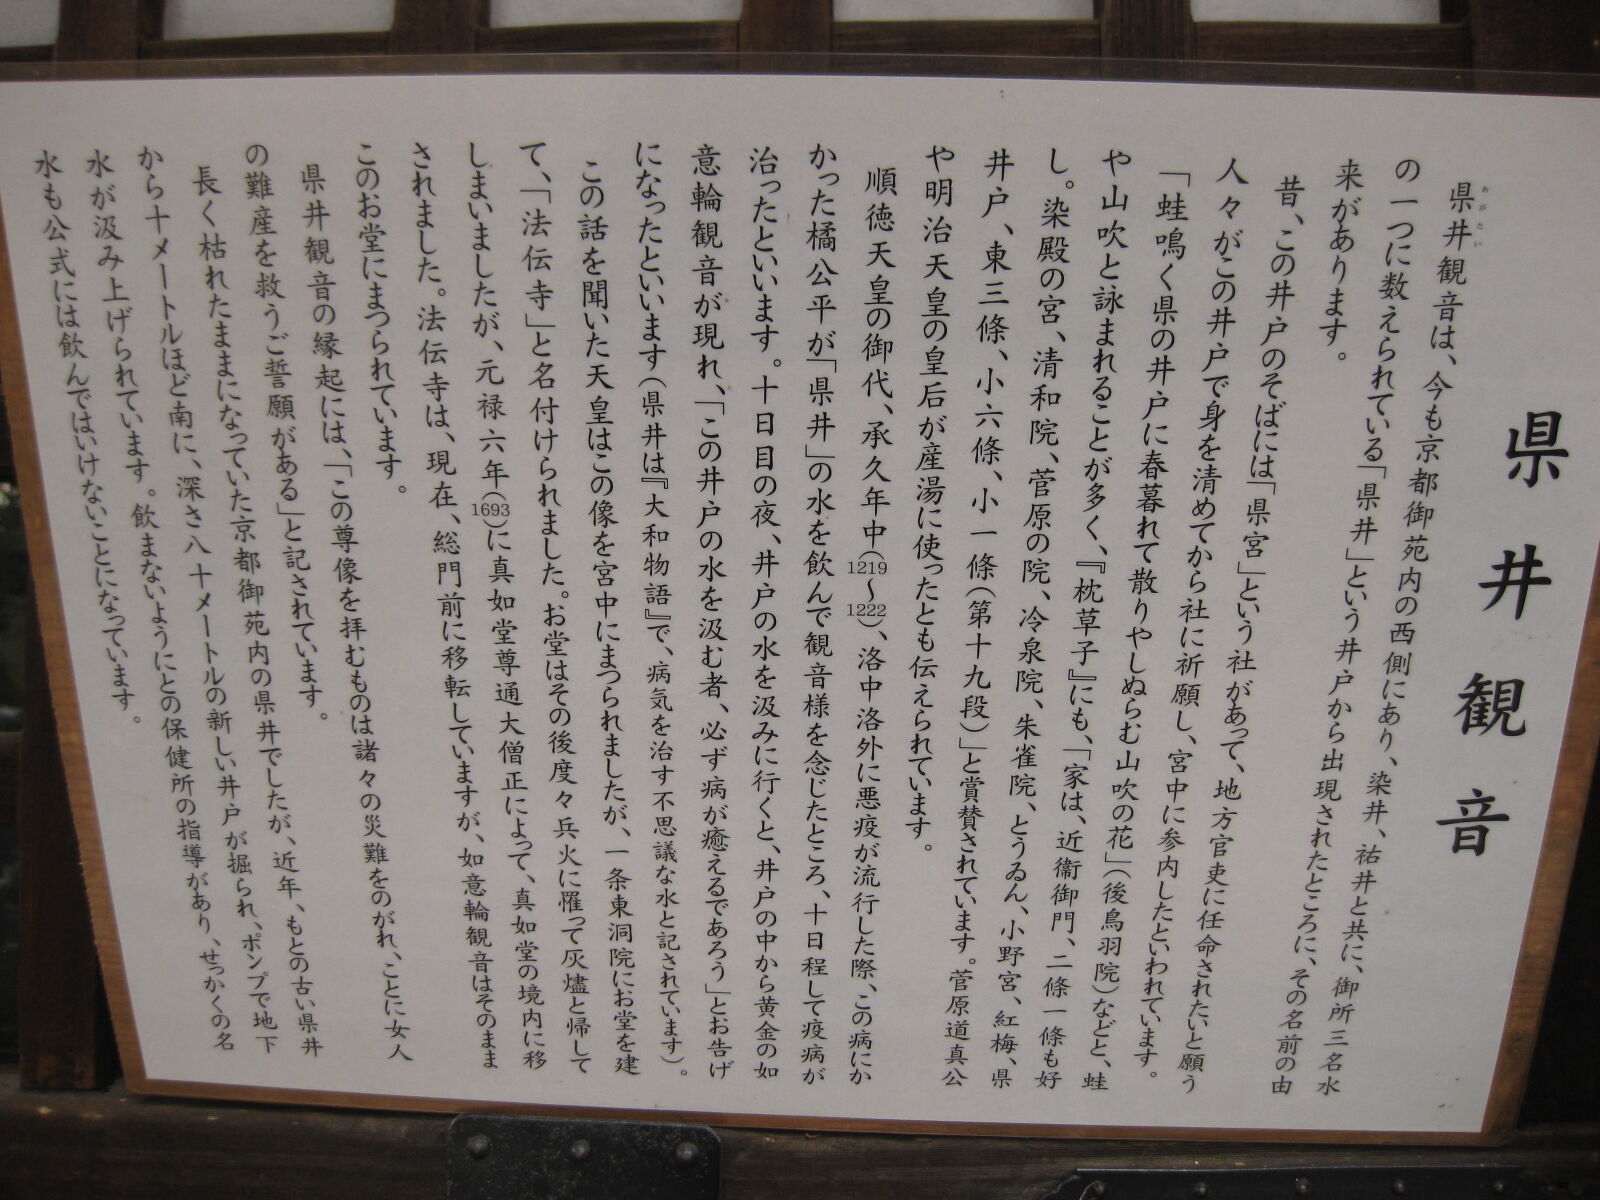 県井観音
県井観音は、今も京都御苑内の西側にあり、染井、祐井と共に、御所三名水
あがたい
の一つに数えられている「県井」という井戸から出現されたところに、その名前の由
来があります。
昔、この井戸のそばには「県宮」という社があって、地方官吏に任命されたいと願う
人々がこの井戸で身を清めてから社に祈願し、宮中に参内したといわれています。
「蛙鳴く県の井戸に春暮れて散りやしぬらむ山吹の花」(後鳥羽院)などと、蛙
や山吹と詠まれることが多く、『枕草子』にも、「家は、近衞御門、二條一條も好
し。染殿の宮、清和院、菅原の院、冷泉院、朱雀院、とうゐん、小野宮、紅梅、県
井戸、東三條、小六條、小一條(第十九段)」と賞賛されています。菅原道真公
や明治天皇の皇后が産湯に使ったとも伝えられています。
順徳天皇の御代、承久年中(1219~1222)、洛中洛外に悪疫が流行した際、この病にか
かった橘公平が「県井」の水を飲んで観音様を念じたところ、十日程して疫病が
治ったといいます。十日目の夜、井戸の水を汲みに行くと、井戸の中から黄金の如
意輪観音が現れ、「この井戸の水を汲む者、必ず病が癒えるであろう」とお告げ
になったといいます(県井は『大和物語』で、病気を治す不思議な水と記されています)。
この話を聞いた天皇はこの像を宮中にまつられましたが、一条東洞院にお堂を建
て、「法伝寺」と名付けられました。お堂はその後度々兵火に罹って灰燼と帰して
しまいましたが、元禄六年(1693)に真如堂尊通大僧正によって、真如堂の境内に移
されました。法伝寺は、現在、総門前に移転していますが、如意輪観音はそのまま
このお堂にまつられています。
県井観音の縁起には、「この尊像を拝むものは諸々の災難をのがれ、ことに女人
の難産を救うご誓願がある」と記されています。
長く枯れたままになっていた京都御苑内の県井でしたが、近年、もとの古い県井
から十メートルほど南に、深さ八十メートルの新しい井戸が掘られ、ポンプで地下
水が汲み上げられています。飲まないようにとの保健所の指導があり、せっかくの名
水も公式には飲んではいけないことになっています。